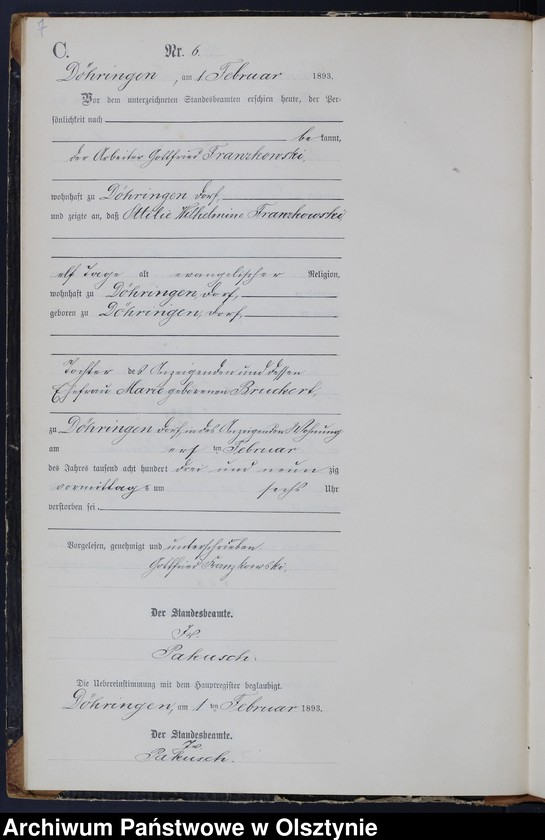 7
C.
Nr. 6.
Döhringen, am 1 Februar 1893.
Vor dem unterzeichneten Standesbeamten erschien heute, der Per-
sönlichkeit nach
be kannt,
der Arbeiter Gottfried Franzkowski,
wohnhaft zu Döhringen Dorf,
und zeigte an, daß Ottilie Wilhelmine Franzkowski
elf Tage alt evangelischer Religion,
wohnhaft zu Döhringen, Dorf,
geboren zu Döhringen, Dorf,
Tochter des Anzeigenden und dessen
Ehefrau Marie geborenen Bruchert,
zu Döhringen Dorf in des Anzeigenden Wohnung
am ersten Februar
des Jahres tausend acht hundert drei und neun zig
vormittags um sechs Uhr
verstorben sei.
Vorgelesen, genehmigt und unterschrieben.
Gottfried Franzkowski.
Der Standesbeamte.
Pakusch.
Die Uebereinstimmung mit dem Hauptregister beglaubigt.
Döhringen, am 1ten Februar 1893.
Der Standesbeamte.
Pakusch.
Archiwum Państwowe w Olsztynie